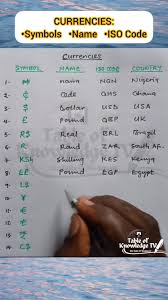 CURRENCIES:
•Symbols •Name •ISO Code
Currencies
SYMBOL NAME ISO CODE COUNTRY
1- ₦ naira NGN Nigeria
2- ₵ Cedi GHS Ghana
3- $ Dollar USD USA
4- £ Pound GBP UK
5- R$ Real BRL Brazil
6- R Rand ZAR South Afri.
7- KSh Shilling KES Kenya
8- E£ Pound EGP Egypt
9- L$
10- ¥
11- €
12- ₹
13-
14- C$
Table of
Knowledge TV